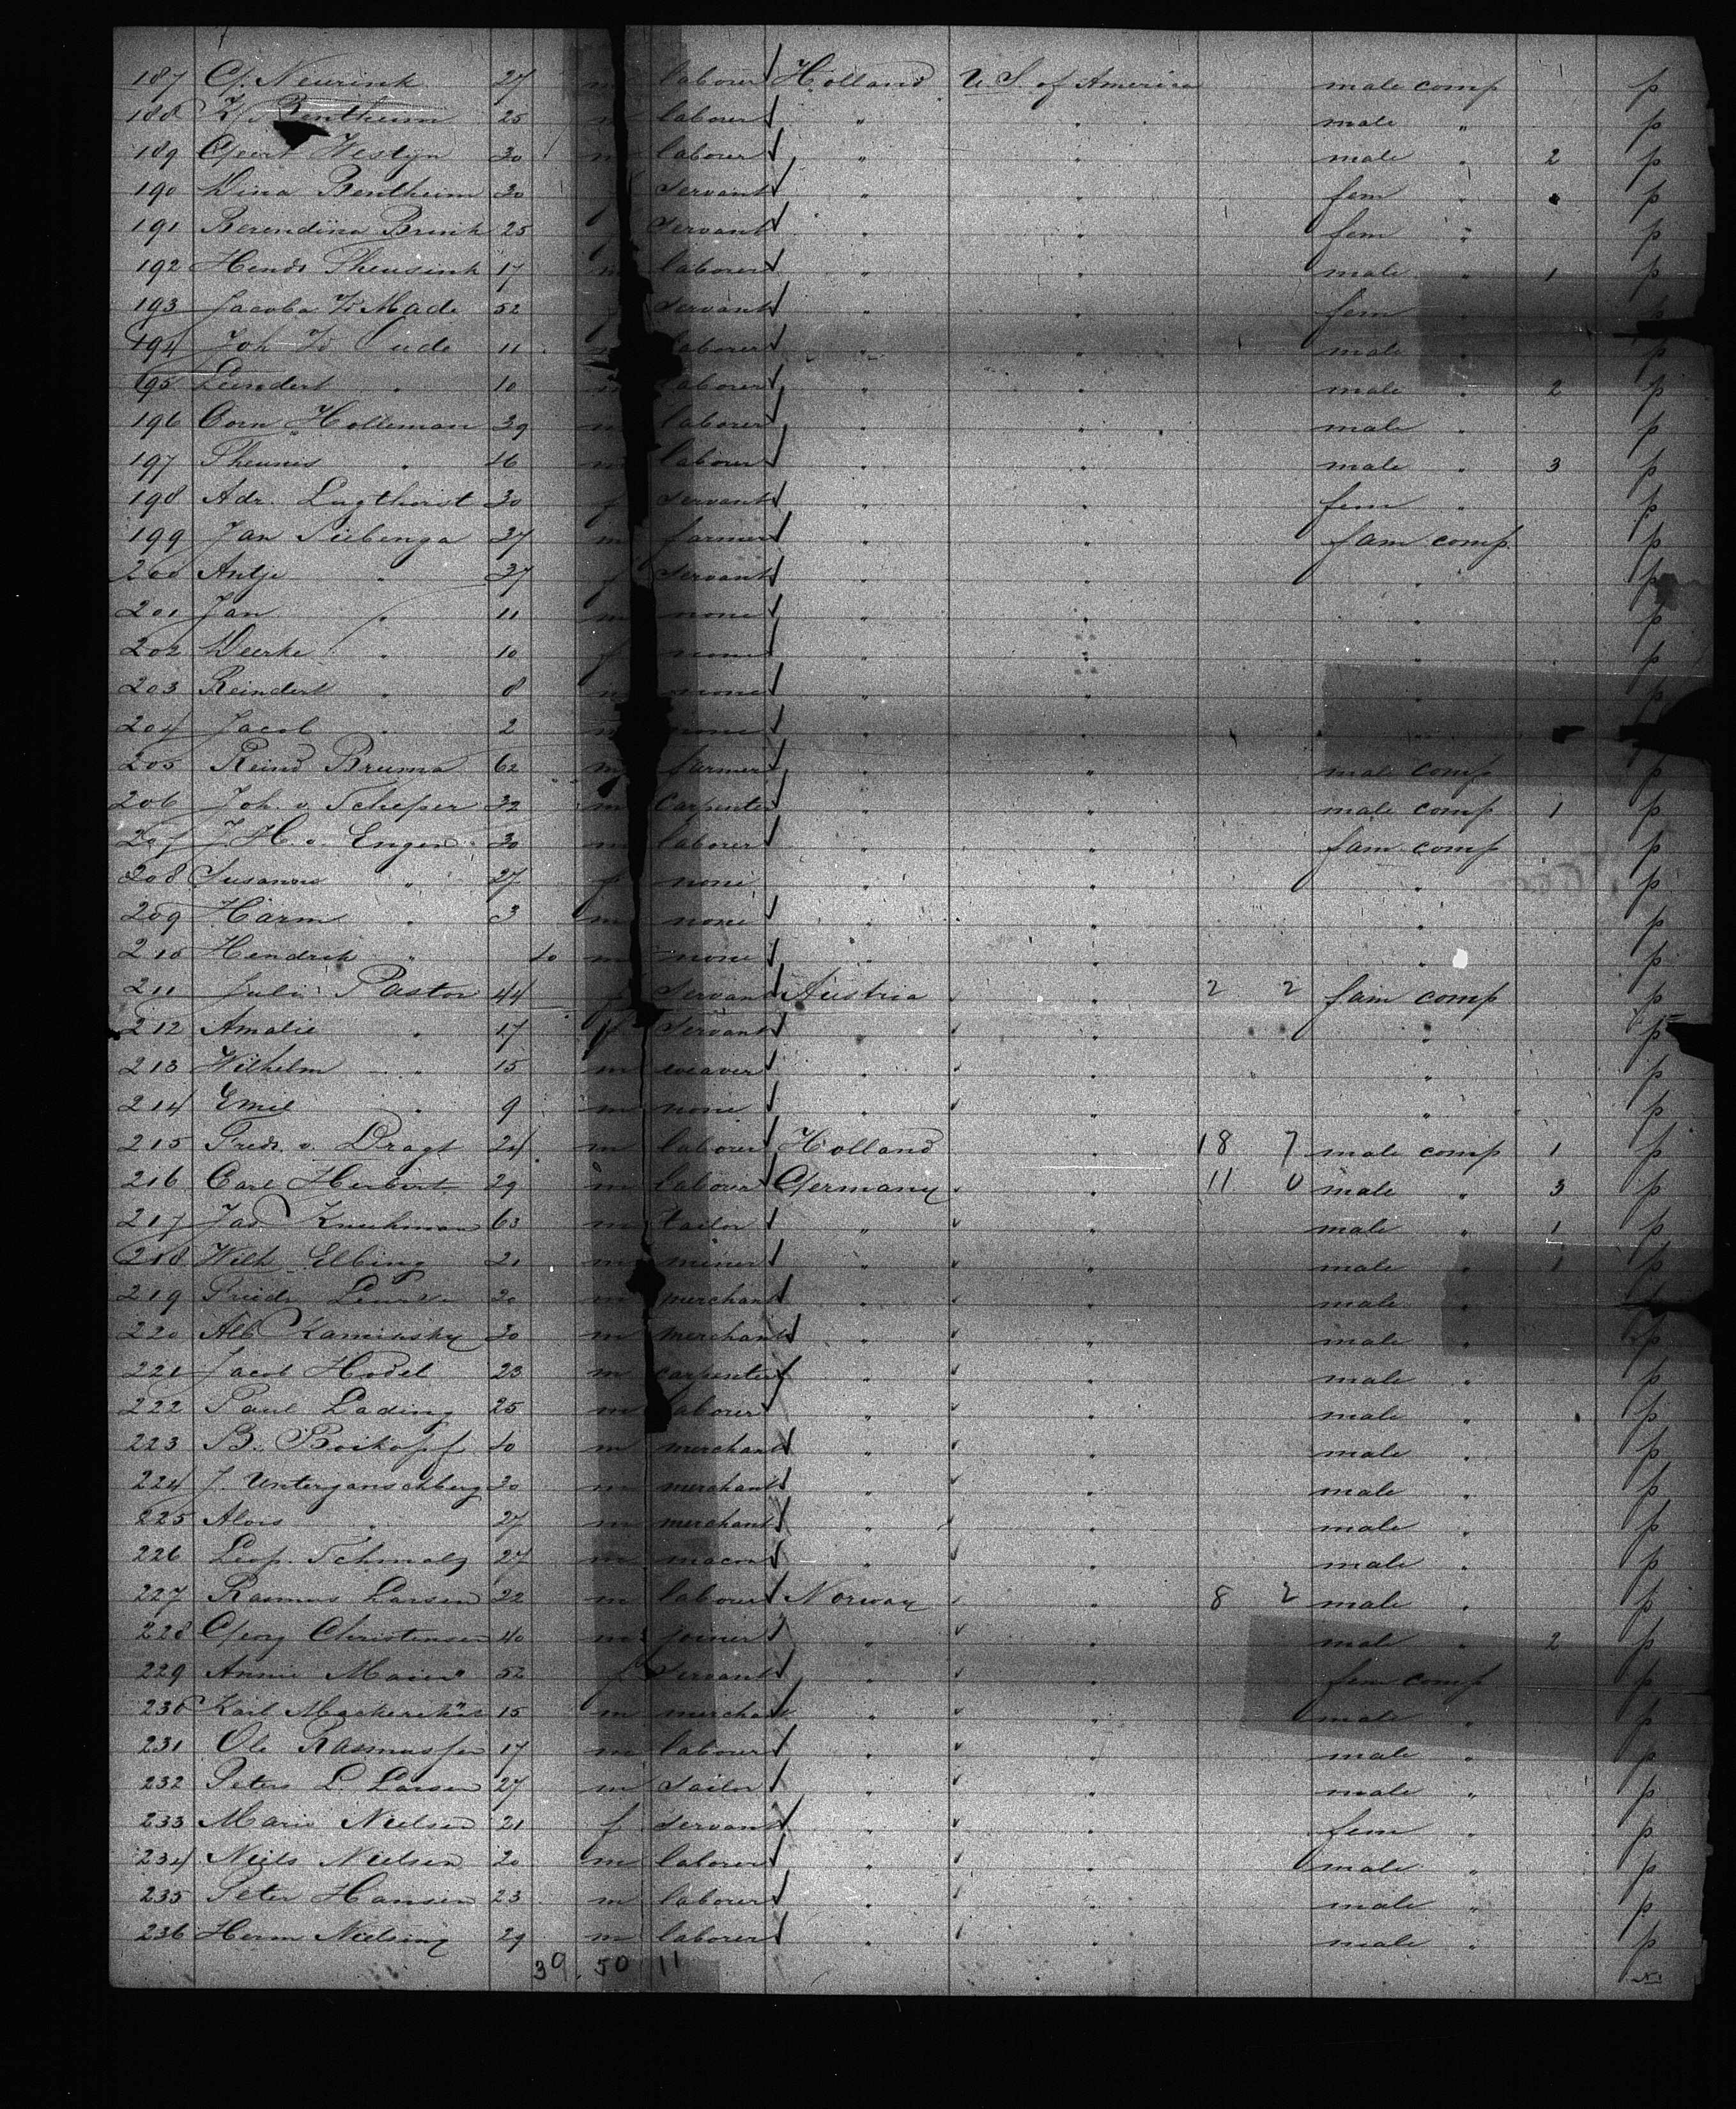 187 G. Neurink 27 m laborer Holland U.S. of America male comp p
188 K. Bentheim 25 m laborer " " male " p
189 Geert Westyn 30 m laborer " " male " 2 p
190 Dina Bentheim 30 servant " " fem " p
191 Berendina Brink 25 servant " " fem " p
192 Hendr Theusink 17 m laborer " " male " 1 p
193 Jacoba Made 52 servant " " fem p
194 Joh 11 laborer " " male " p
195 Leendert " 10 m laborer " " male " 2 p
196 Corn Holleman 39 m laborer " " male " p
197 Theunis " 16 m laborer " " male " 3 p
198 Adr. Lugthorst 30 f servant " " fem " p
199 Jan Siebenga 37 m farmer " " fam comp. p
200 Antje " 37 f servant " " " p
201 Jan " 11 m none " " " p
202 Dierke " 10 f none " " " p
203 Reindert " 8 m none " " " p
204 Jacob " 2 none " " " p
205 Reind Bruma 62 m farmer " " male comp p
206 Joh. v. Scheper 32 m carpenter " " male comp 1 p
207 J. H. v. Engen 30 m laborer " " fam comp p
208 Susanna " 27 f none " " " p
209 Harm " 3 m none " " " p
210 Hendrik " 10 m none " " " p
211 Juli Pastor 44 f servant Austria " 2 2 fam comp p
212 Amalie " 17 f servant " " " p
213 Wilhelm " 15 m weaver " " " p
214 Emil " 9 m none " " " p
215 Fredr. v. Dragt 24 m laborer Holland " 18 7 male comp 1 p
216 Carl Herbert 29 m laborer Germany " 11 0 male " 3 p
217 Jas 63 m tailor " " male " 1 p
218 Wilh Elbing 21 m miner " " male " 1 p
219 Friedr 20 m merchant " " male "
220 Alb Kaminsky 30 m merchant " " male " p
221 Jacob Hodel 23 m carpenter " " male " p
222 Paul Lading 25 m laborer " " male " p
223 B. Boikopf 40 m merchant " " male " p
224 J. Unterganschberg 30 m merchant " " male " p
225 Alois " 27 m merchant " " male " p
226 Leop. Schmalz 27 m macon " " male " p
227 Rasmus Larsen 22 m laborer Norway " 8 2 male " p
228 Georg Christensen 40 m joiner " " male " 2 p
229 Annie Maier 52 f servant " " fem comp p
230 Karl 15 m merchant " " male " p
231 Ole Rasmussen 17 m laborer " " male " p
232 Peter L. Larsen 27 m sailor " " male " p
233 Marie Nielsen 21 f servant " " fem " p
234 Niels Nielsen 20 m laborer " " male " p
235 Peter Hansen 23 m laborer " " male " p
236 Herm Nielsing 29 m laborer " " male " p
39. 50 11